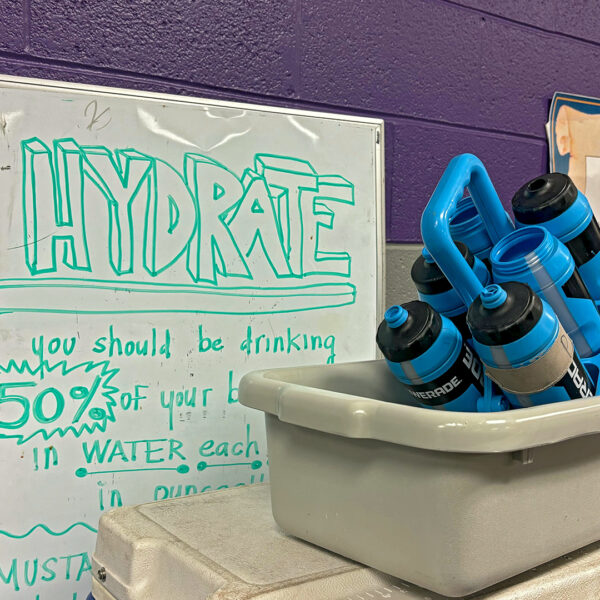 HYDRATE
you should be drinking
50% of your b
in WATER each
in
MUSTA
POWERADE